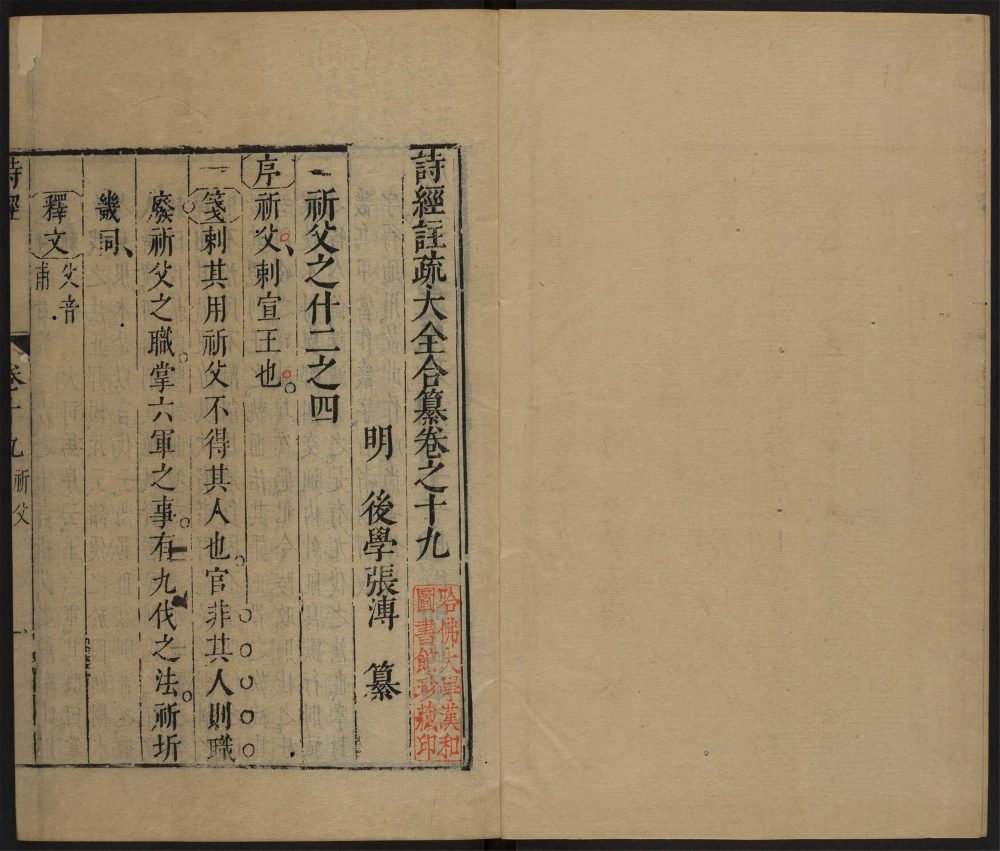 詩經註疏大全合纂卷之十九
明 後學張溥 纂
哈佛大學漢和圖書館珍藏印
祈父之什二之四
序 祈父、刺宣王也。
箋 刺其用祈父不得其人也。官非其人則職
廢。祈父之職。掌六軍之事。有九伐之法。祈圻
畿同、
釋文 父音甫
詩經 卷十九 祈父 一